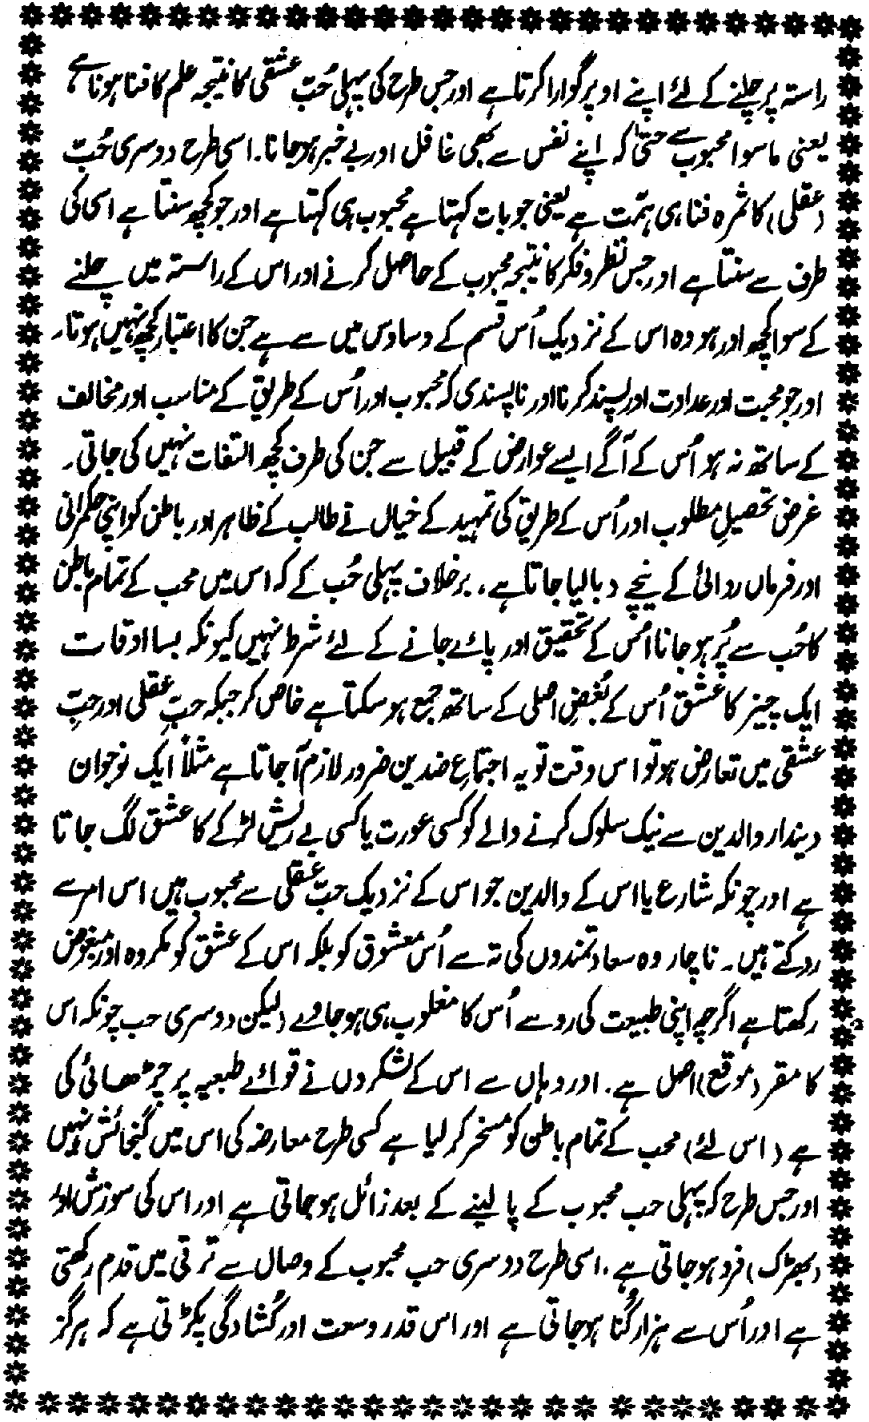 راستہ پر چلنے کے لئے اپنے اوپر گوارا کرتا ہے اور جس طرح کی پہلی حُبِّ عشقی کا نتیجہ علم کا فنا ہونا ہے
یعنی ماسوا محبوب سے حتیٰ کہ اپنے نفس سے بھی غافل اور بے خبر ہو جانا۔ اسی طرح دوسری حُبّ
(عقلی) کا ثمرہ فنا ہی ہمّت ہے یعنی جو بات کہتا ہے محبوب ہی کہتا ہے اور جو کچھ سنتا ہے اسی کی
طرف سے سنتا ہے اور جس نظر و فکر کا نتیجہ محبوب کے حاصل کرنے اور اس کے راستہ میں چلنے
کے سوا کچھ اور ہو وہ اس کے نزدیک اُس قسم کے وساوس میں سے ہے جن کا اعتبار کچھ نہیں ہوتا۔
اور جو محبت اور عداوت اور پسند کرنا اور ناپسندی کہ محبوب اور اُس کے طریق کے مناسب اور مخالف
کے ساتھ نہ ہو اُس کے آگے ایسے عوارض کے قبیل سے جن کی طرف کچھ التفات نہیں کی جاتی۔
غرض تحصیلِ مطلوب اور اُس کے طریق کی تمہید کے خیال نے طالب کے ظاہر اور باطن کو اپنی حکمرانی
اور فرماں روائی کے نیچے دبا لیا جاتا ہے، برخلاف پہلی حُب کے کہ اس میں محب کے تمام باطن
کا حُب سے پُر ہو جانا اُس کے تحقیق اور پائے جانے کے لئے شرط نہیں کیونکہ بسا اوقات
ایک چیز کا عشق اُس کے بُغضِ اصلی کے ساتھ جمع ہو سکتا ہے خاص کر جبکہ حبِّ عقلی اور حبِّ
عشقی میں تعارض ہو تو اس وقت تو یہ اجتماعِ ضدین ضرور لازم آ جاتا ہے مثلاً ایک نوجوان
دیندار والدین سے نیک سلوک کرنے والے کو کسی عورت یا کسی بے ریش لڑکے کا عشق لگ جاتا
ہے اور چونکہ شارع یا اس کے والدین جو اس کے نزدیک حبِّ عقلی سے محبوب ہیں اس امر سے
روکتے ہیں۔ ناچار وہ سعادتمندوں کی تہ سے اُس معشوق کو بلکہ اس کے عشق کو مکروہ اور مبغوض
رکھتا ہے اگرچہ اپنی طبیعت کی رو سے اُس کا مغلوب ہی ہو جاوے (لیکن دوسری حب چونکہ اس
کا مقر (موقع) اصل ہے۔ اور وہاں سے اس کے لشکروں نے قوائے طبعیہ پر چڑھائی کی
ہے (اس لئے) محب کے تمام باطن کو مسخر کر لیا ہے کسی طرح معارضہ کی اس میں گنجائش نہیں
اور جس طرح کہ پہلی حب محبوب کے پا لینے کے بعد زائل ہو جاتی ہے اور اس کی سوزش اور
(بھڑک) فرو ہو جاتی ہے، اسی طرح دوسری حب محبوب کے وصال سے ترقی میں قدم رکھتی
ہے اور اُس سے ہزار گُنا ہو جاتی ہے اور اس قدر وسعت اور کُشادگی پکڑتی ہے کہ ہرگز